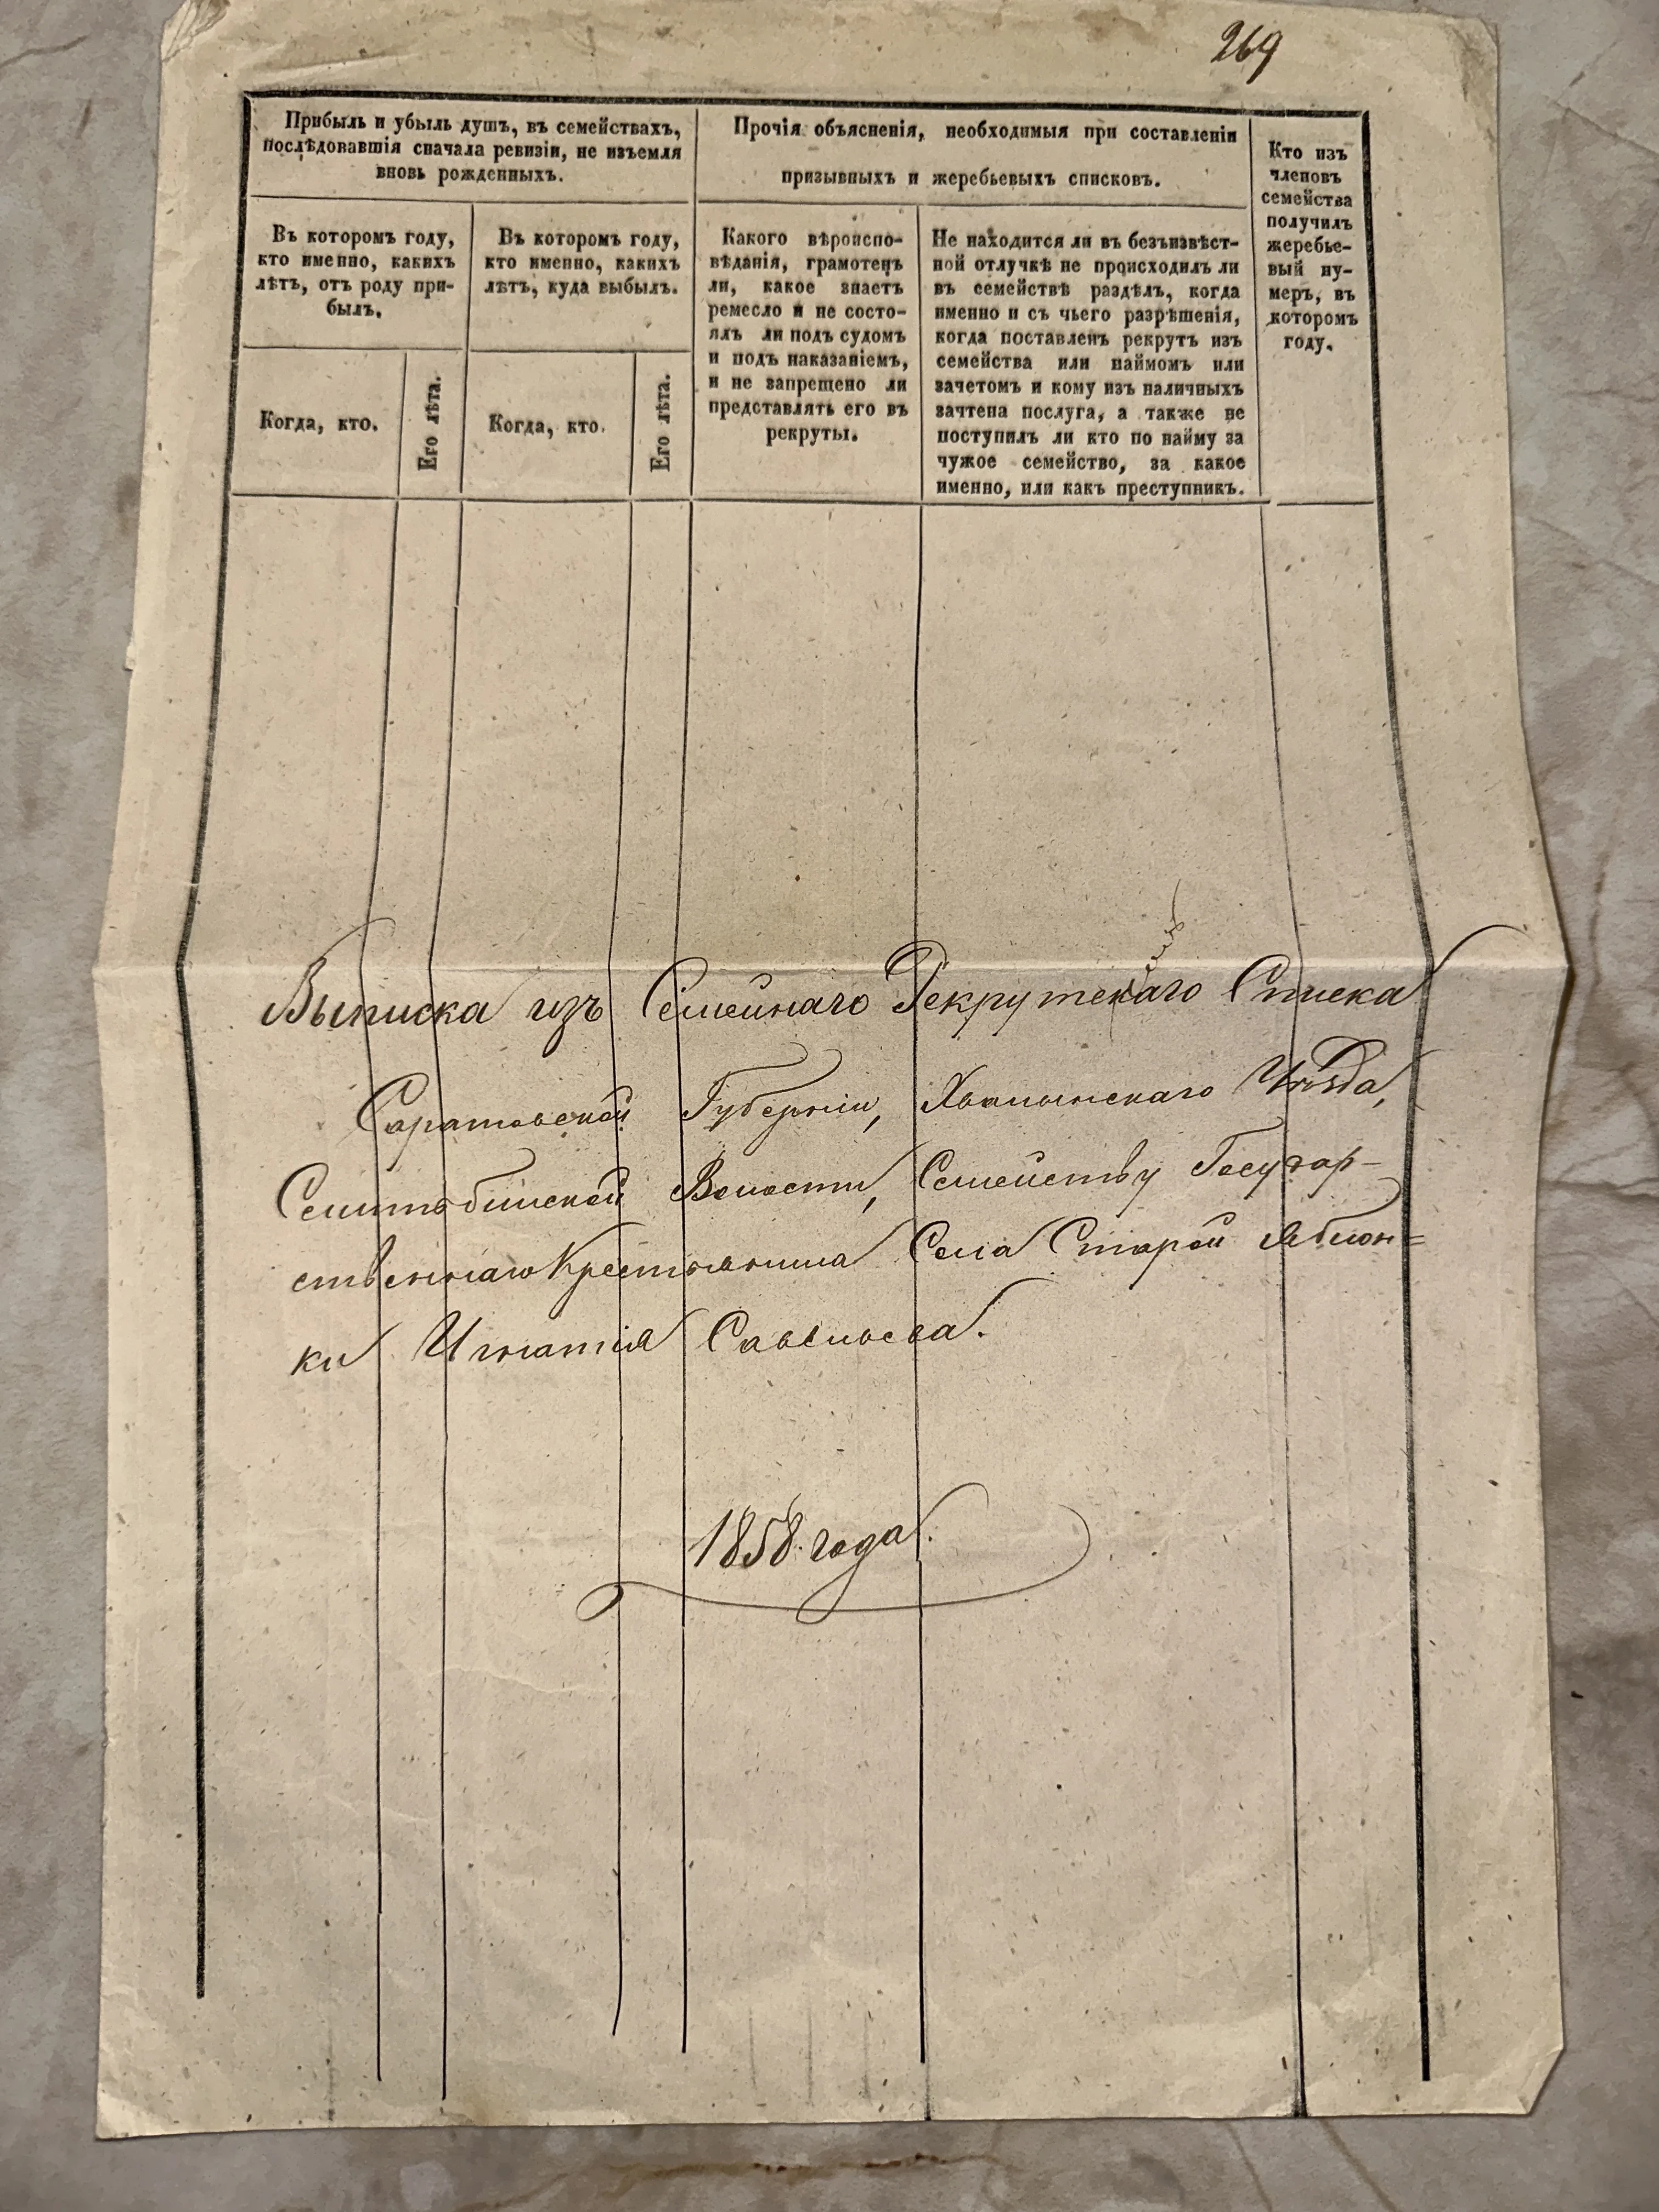 269
Прибыль и убыль душъ, въ семействахъ,
послѣдовавшія сначала ревизіи, не изъемля
вновь рожденныхъ.
Въ которомъ году,
кто именно, какихъ
лѣтъ, отъ роду при-
былъ.
Когда, кто.
Его лѣта.
Въ которомъ году,
кто именно, какихъ
лѣтъ, куда выбылъ.
Когда, кто.
Его лѣта.
Прочія объясненія, необходимыя при составленіи
призывныхъ и жеребьевыхъ списковъ.
Какого вѣроиспо-
вѣданія, грамотенъ
ли, какое знаетъ
ремесло и не состо-
ялъ ли подъ судомъ
и подъ наказаніемъ,
и не запрещено ли
представлять его въ
рекруты.
Не находится ли въ безъизвѣст-
ной отлучкѣ не происходилъ ли
въ семействѣ раздѣлъ, когда
именно и съ чьего разрѣшенія,
когда поставленъ рекрутъ изъ
семейства или наймомъ или
зачетомъ и кому изъ наличныхъ
зачтена послуга, а также не
поступилъ ли кто по найму за
чужое семейство, за какое
именно, или какъ преступникъ.
Кто изъ
членовъ
семейства
получилъ
жеребье-
вый ну-
меръ, въ
которомъ
году.
Выписка изъ Семейнаго Рекрутскаго Списка
Саратовской Губерніи, Хвалынскаго Уѣзда,
Волости, Семейству Государ-
ственнаго Крестьянина Села Старой Яблон=
ки Игнатія Савельева.
1858. года.